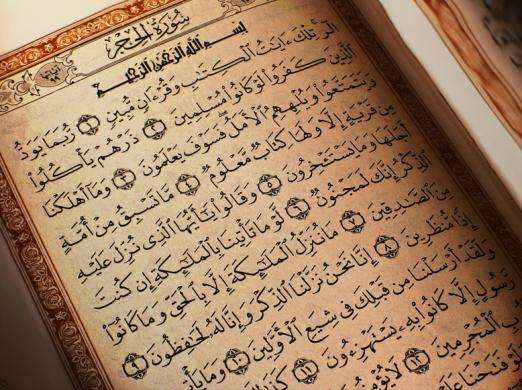 سُورَةُ الحِجْرِ
بِسْمِ اللَّهِ الرَّحْمَٰنِ الرَّحِيمِ
الٓرۚ تِلْكَ ءَايَٰتُ ٱلْكِتَٰبِ وَقُرْءَانٍ مُّبِينٍ ١ رُّبَمَا يَوَدُّ
ٱلَّذِينَ كَفَرُوا۟ لَوْ كَانُوا۟ مُسْلِمِينَ ٢ ذَرْهُمْ يَأْكُلُوا۟
وَيَتَمَتَّعُوا۟ وَيُلْهِهِمُ ٱلْأَمَلُۖ فَسَوْفَ يَعْلَمُونَ ٣ وَمَآ أَهْلَكْنَا
مِن قَرْيَةٍ إِلَّا وَلَهَا كِتَابٌ مَّعْلُومٌ ٤ مَّا تَسْبِقُ مِنْ أُمَّةٍ
أَجَلَهَا وَمَا يَسْتَـْٔخِرُونَ ٥ وَقَالُوا۟ يَٰٓأَيُّهَا ٱلَّذِى نُزِّلَ عَلَيْهِ
ٱلذِّكْرُ إِنَّكَ لَمَجْنُونٌ ٦ لَّوْ مَا تَأْتِينَا بِٱلْمَلَٰٓئِكَةِ إِن كُنتَ
مِنَ ٱلصَّٰدِقِينَ ٧ مَا نُنَزِّلُ ٱلْمَلَٰٓئِكَةَ إِلَّا بِٱلْحَقِّ وَمَا كَانُوٓا۟
إِذًا مُّنظَرِينَ ٨ إِنَّا نَحْنُ نَزَّلْنَا ٱلذِّكْرَ وَإِنَّا لَهُۥ لَحَٰفِظُونَ ٩
وَلَقَدْ أَرْسَلْنَا مِن قَبْلِكَ فِى شِيَعِ ٱلْأَوَّلِينَ ١٠ وَمَا
رَّسُولٍ إِلَّا كَانُوا۟ بِهِۦ يَسْتَهْزِءُونَ ١١
ٱلْمُجْرِمِينَ ١٢ لَا
فَتَحْنَا